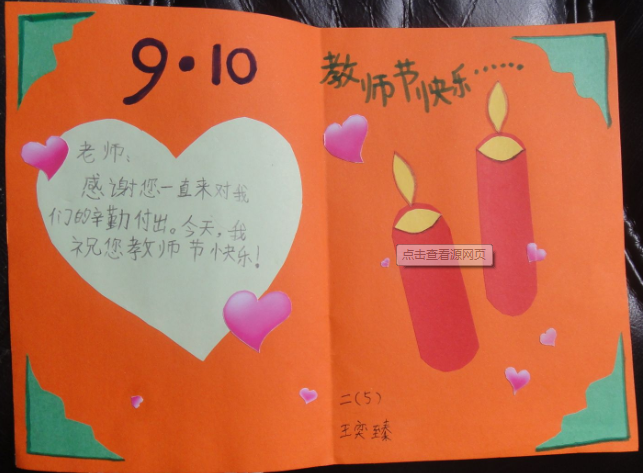 9·10
老师:
感谢您一直来对我
们的辛勤付出。今天,我
祝您教师节快乐!
教师节快乐……
点击查看源网页
二(5)
王奕臻